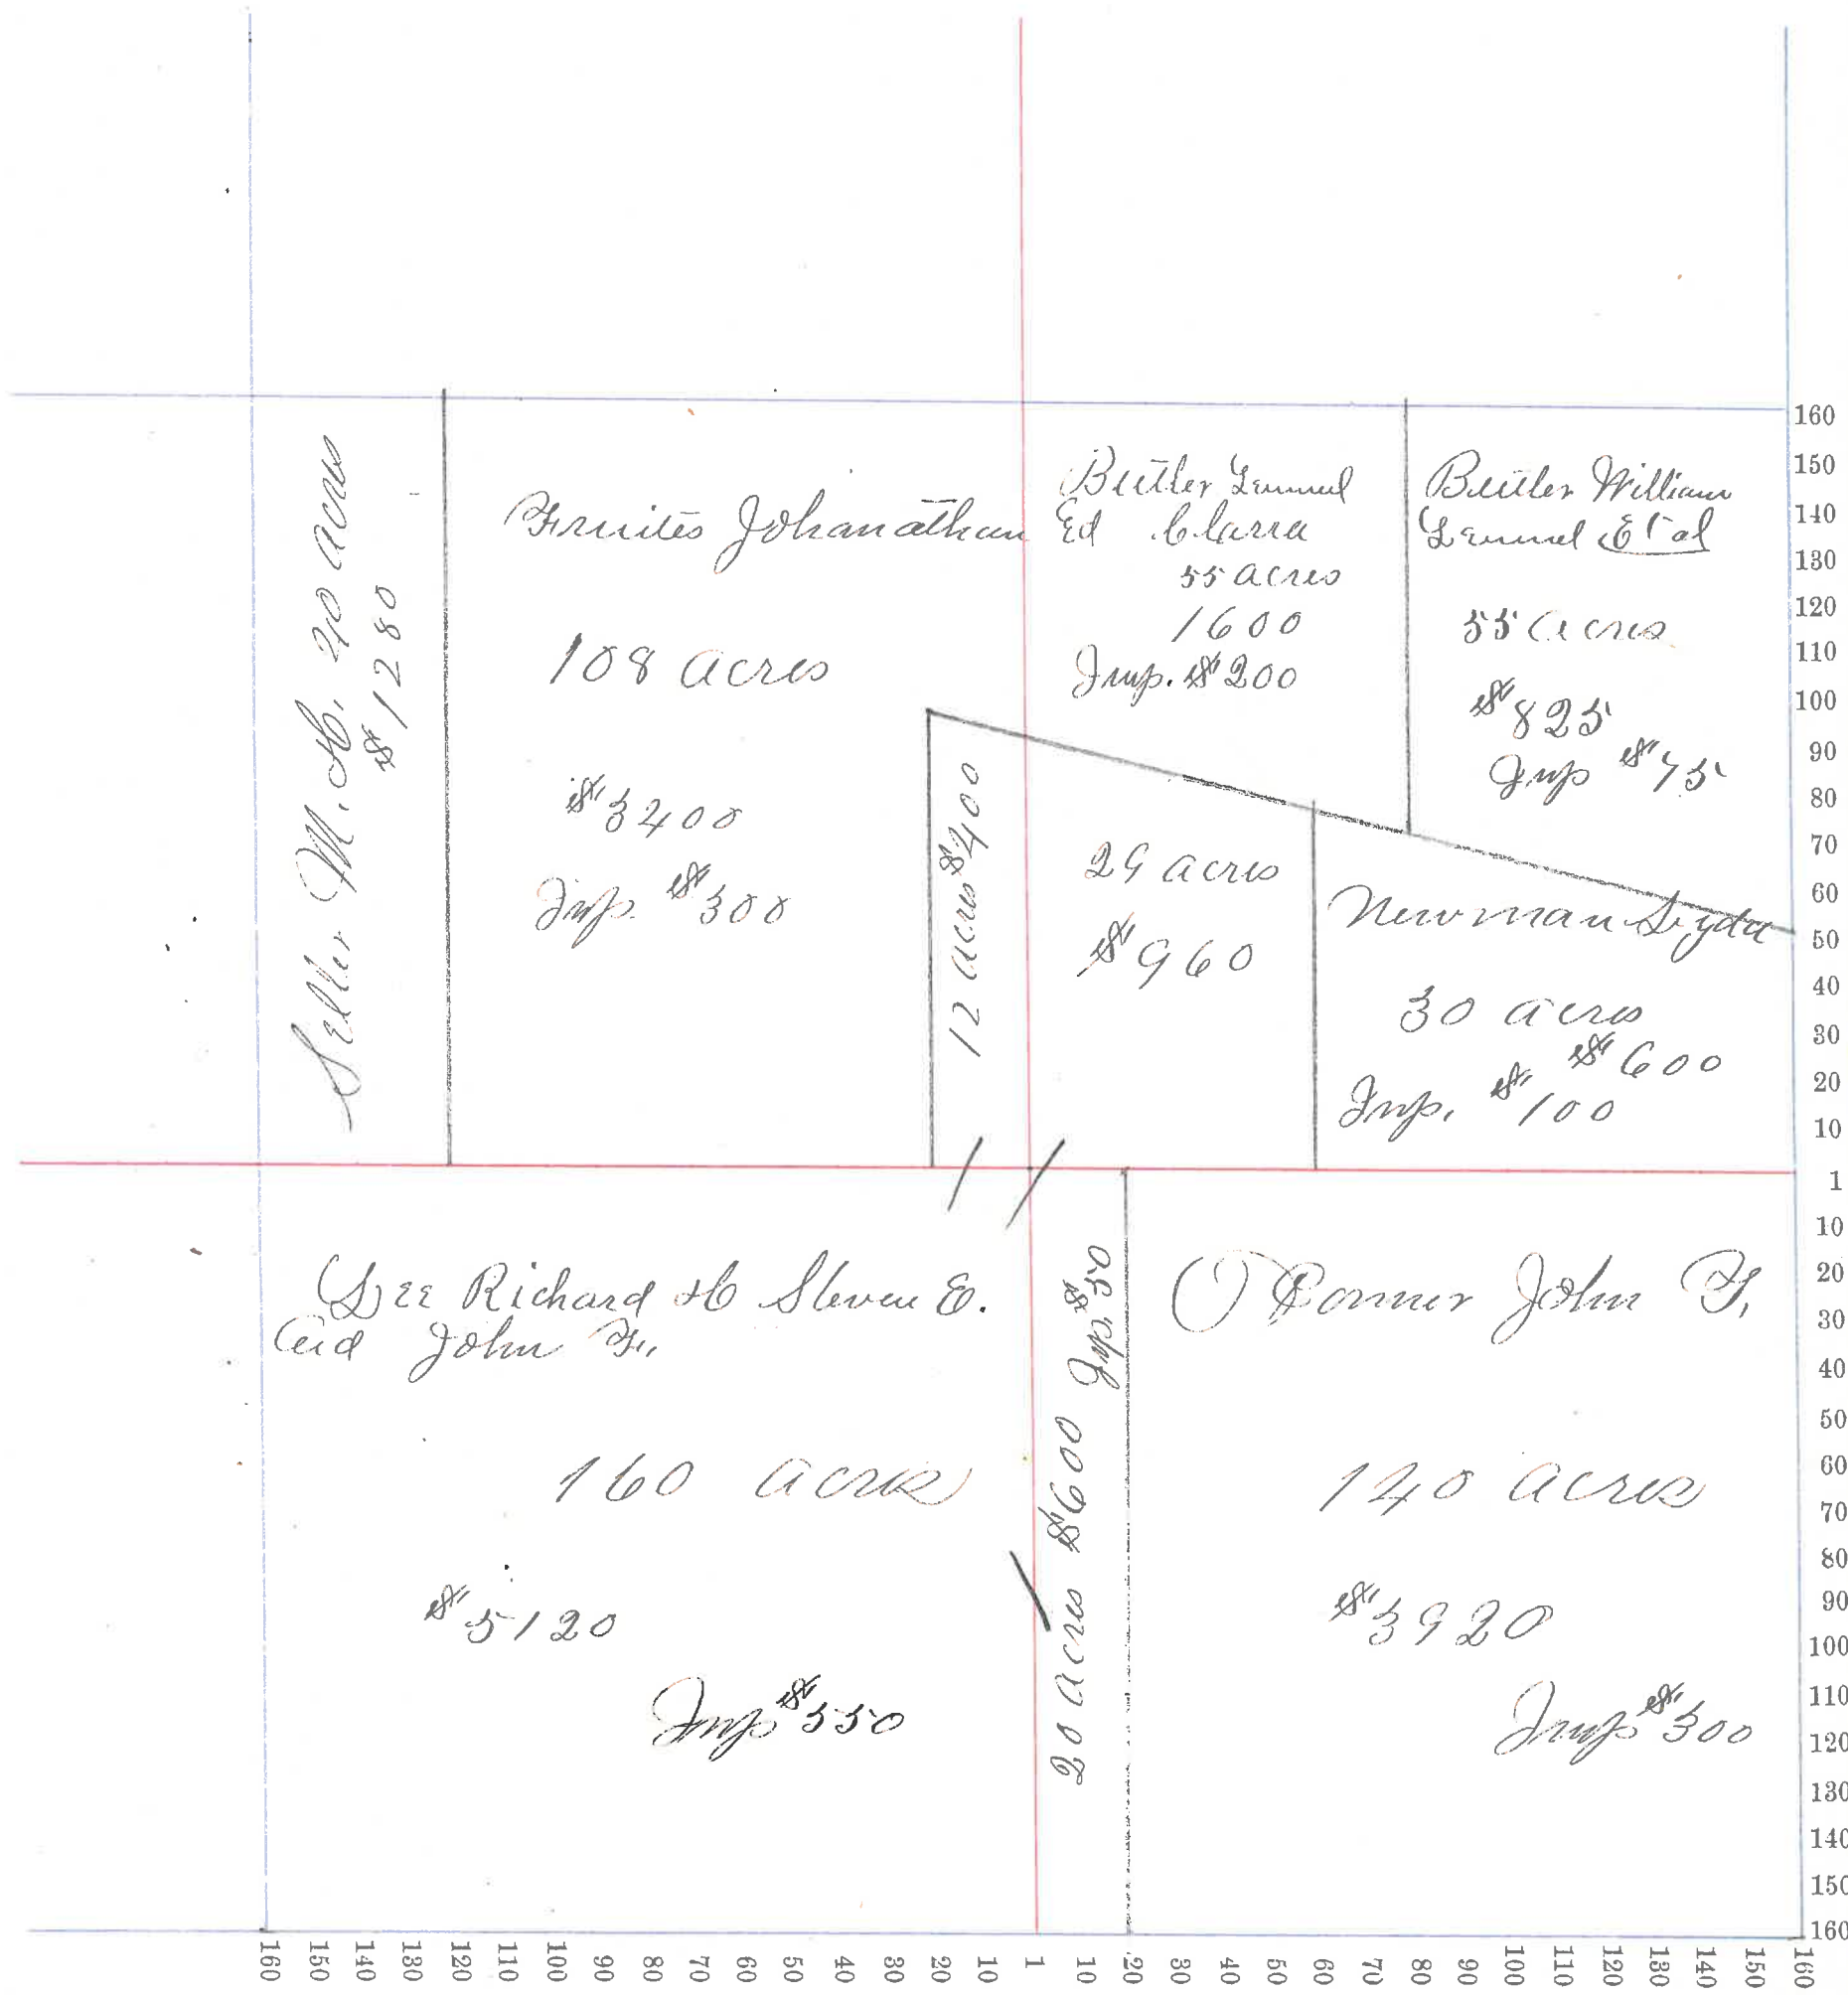 Seller M. H. 40 acres
$1280
Fruites Johanathan
108 acres
$3400
Imp. $300
Butler Lemuel
Ed Clarra
55 acres
1600
Imp. $200
Butler William
Lemuel Et al
55 acres
$825
Imp $75
12 acres $400
29 acres
$960
Newman Lyda
30 acres
$600
Imp. $100
Lee Richard H Steven E.
And John F.
160 acres
$5120
Imp $550
20 acres $600 Imp $50
O Conner John F.
140 acres
$3920
Imp $300
160
150
140
130
120
110
100
90
80
70
60
50
40
30
20
10
1
10
20
30
40
50
60
70
80
90
100
110
120
130
140
150
160
160 150 140 130 120 110 100 90 80 70 60 50 40 30 20 10 1 10 20 30 40 50 60 70 80 90 100 110 120 130 140 150 160